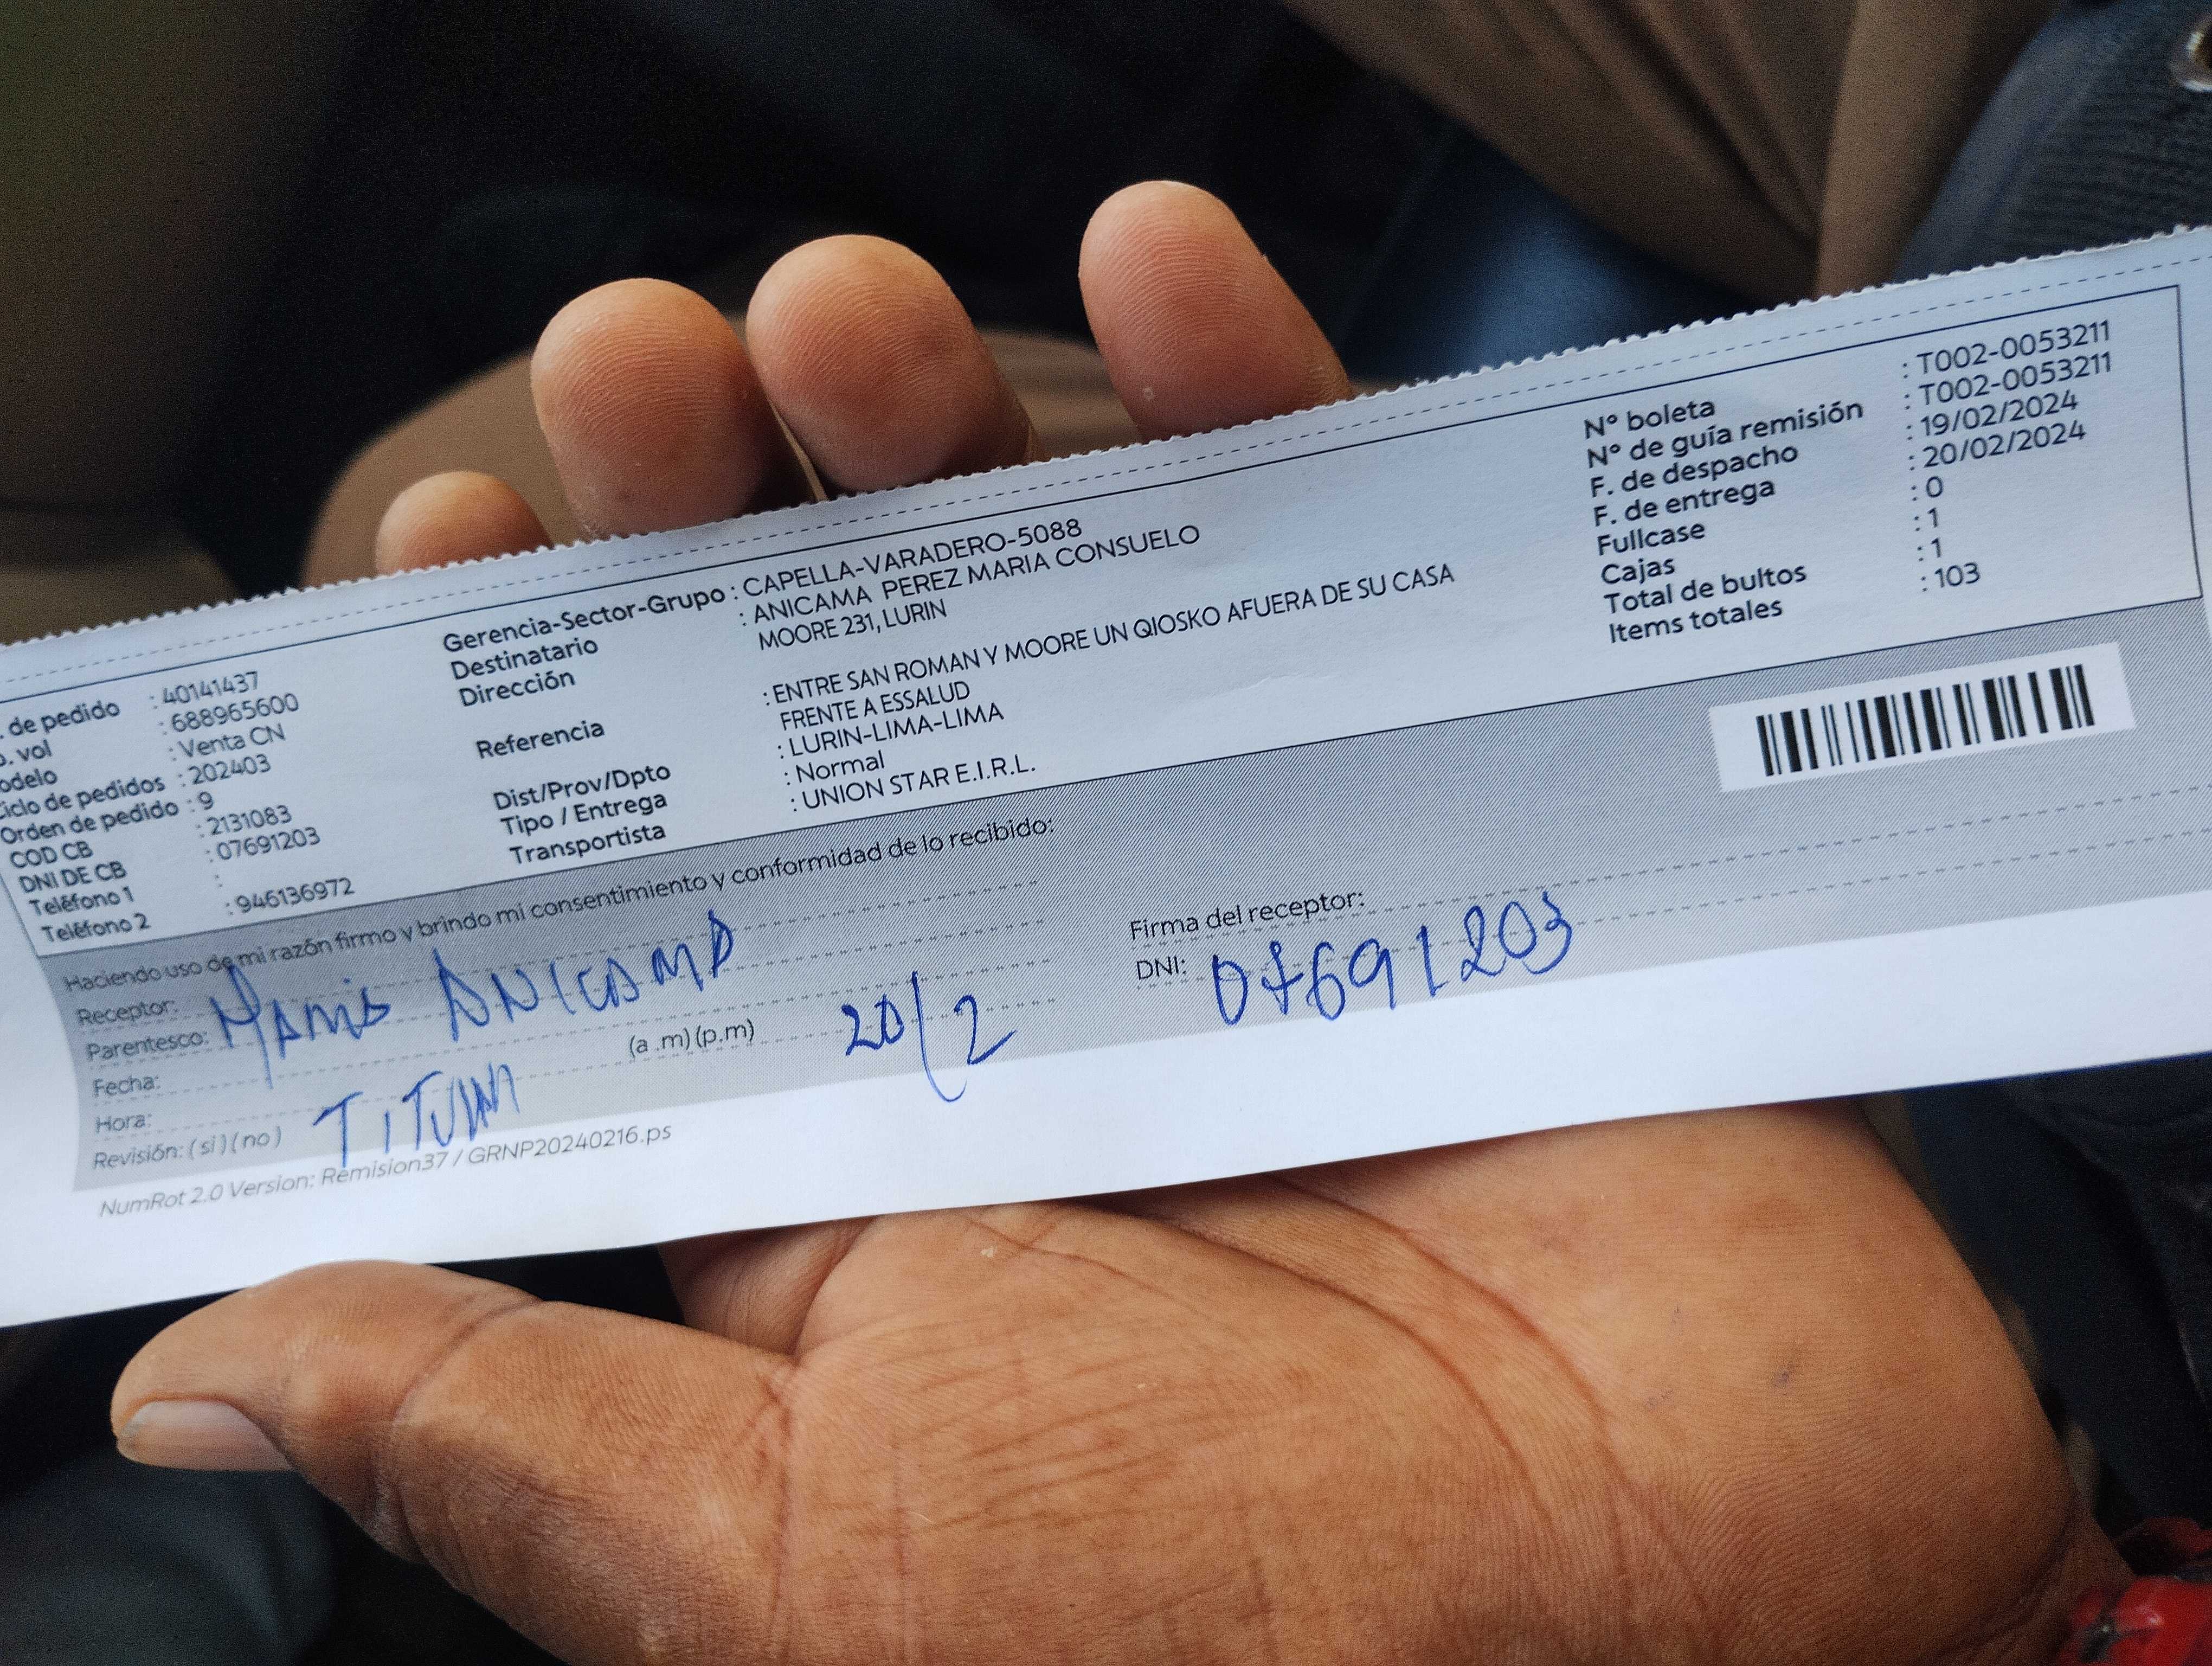 . de pedido : 40141437
. vol : 688965600
odelo : Venta CN
iclo de pedidos : 202403
Orden de pedido : 9
COD CB : 2131083
DNI DE CB : 07691203
Teléfono 1 :
Teléfono 2 : 946136972
Gerencia-Sector-Grupo : CAPELLA-VARADERO-5088
Destinatario : ANICAMA PEREZ MARIA CONSUELO
Dirección MOORE 231, LURIN
Referencia : ENTRE SAN ROMAN Y MOORE UN QIOSKO AFUERA DE SU CASA
FRENTE A ESSALUD
Dist/Prov/Dpto : LURIN-LIMA-LIMA
Tipo / Entrega : Normal
Transportista : UNION STAR E.I.R.L.
Nº boleta : T002-0053211
Nº de guía remisión : T002-0053211
F. de despacho : 19/02/2024
F. de entrega : 20/02/2024
Fullcase : 0
Cajas : 1
Total de bultos : 1
Items totales : 103
Haciendo uso de mi razón firmo y brindo mi consentimiento y conformidad de lo recibido:
Receptor:
Parentesco: MARIA ANICAMA
Fecha:
Hora: (a .m) (p.m) 20/2
Revisión: (si) (no) TITULAR
Firma del receptor:
DNI: 07691203
NumRot 2.0 Version: Remision37 / GRNP20240216.ps